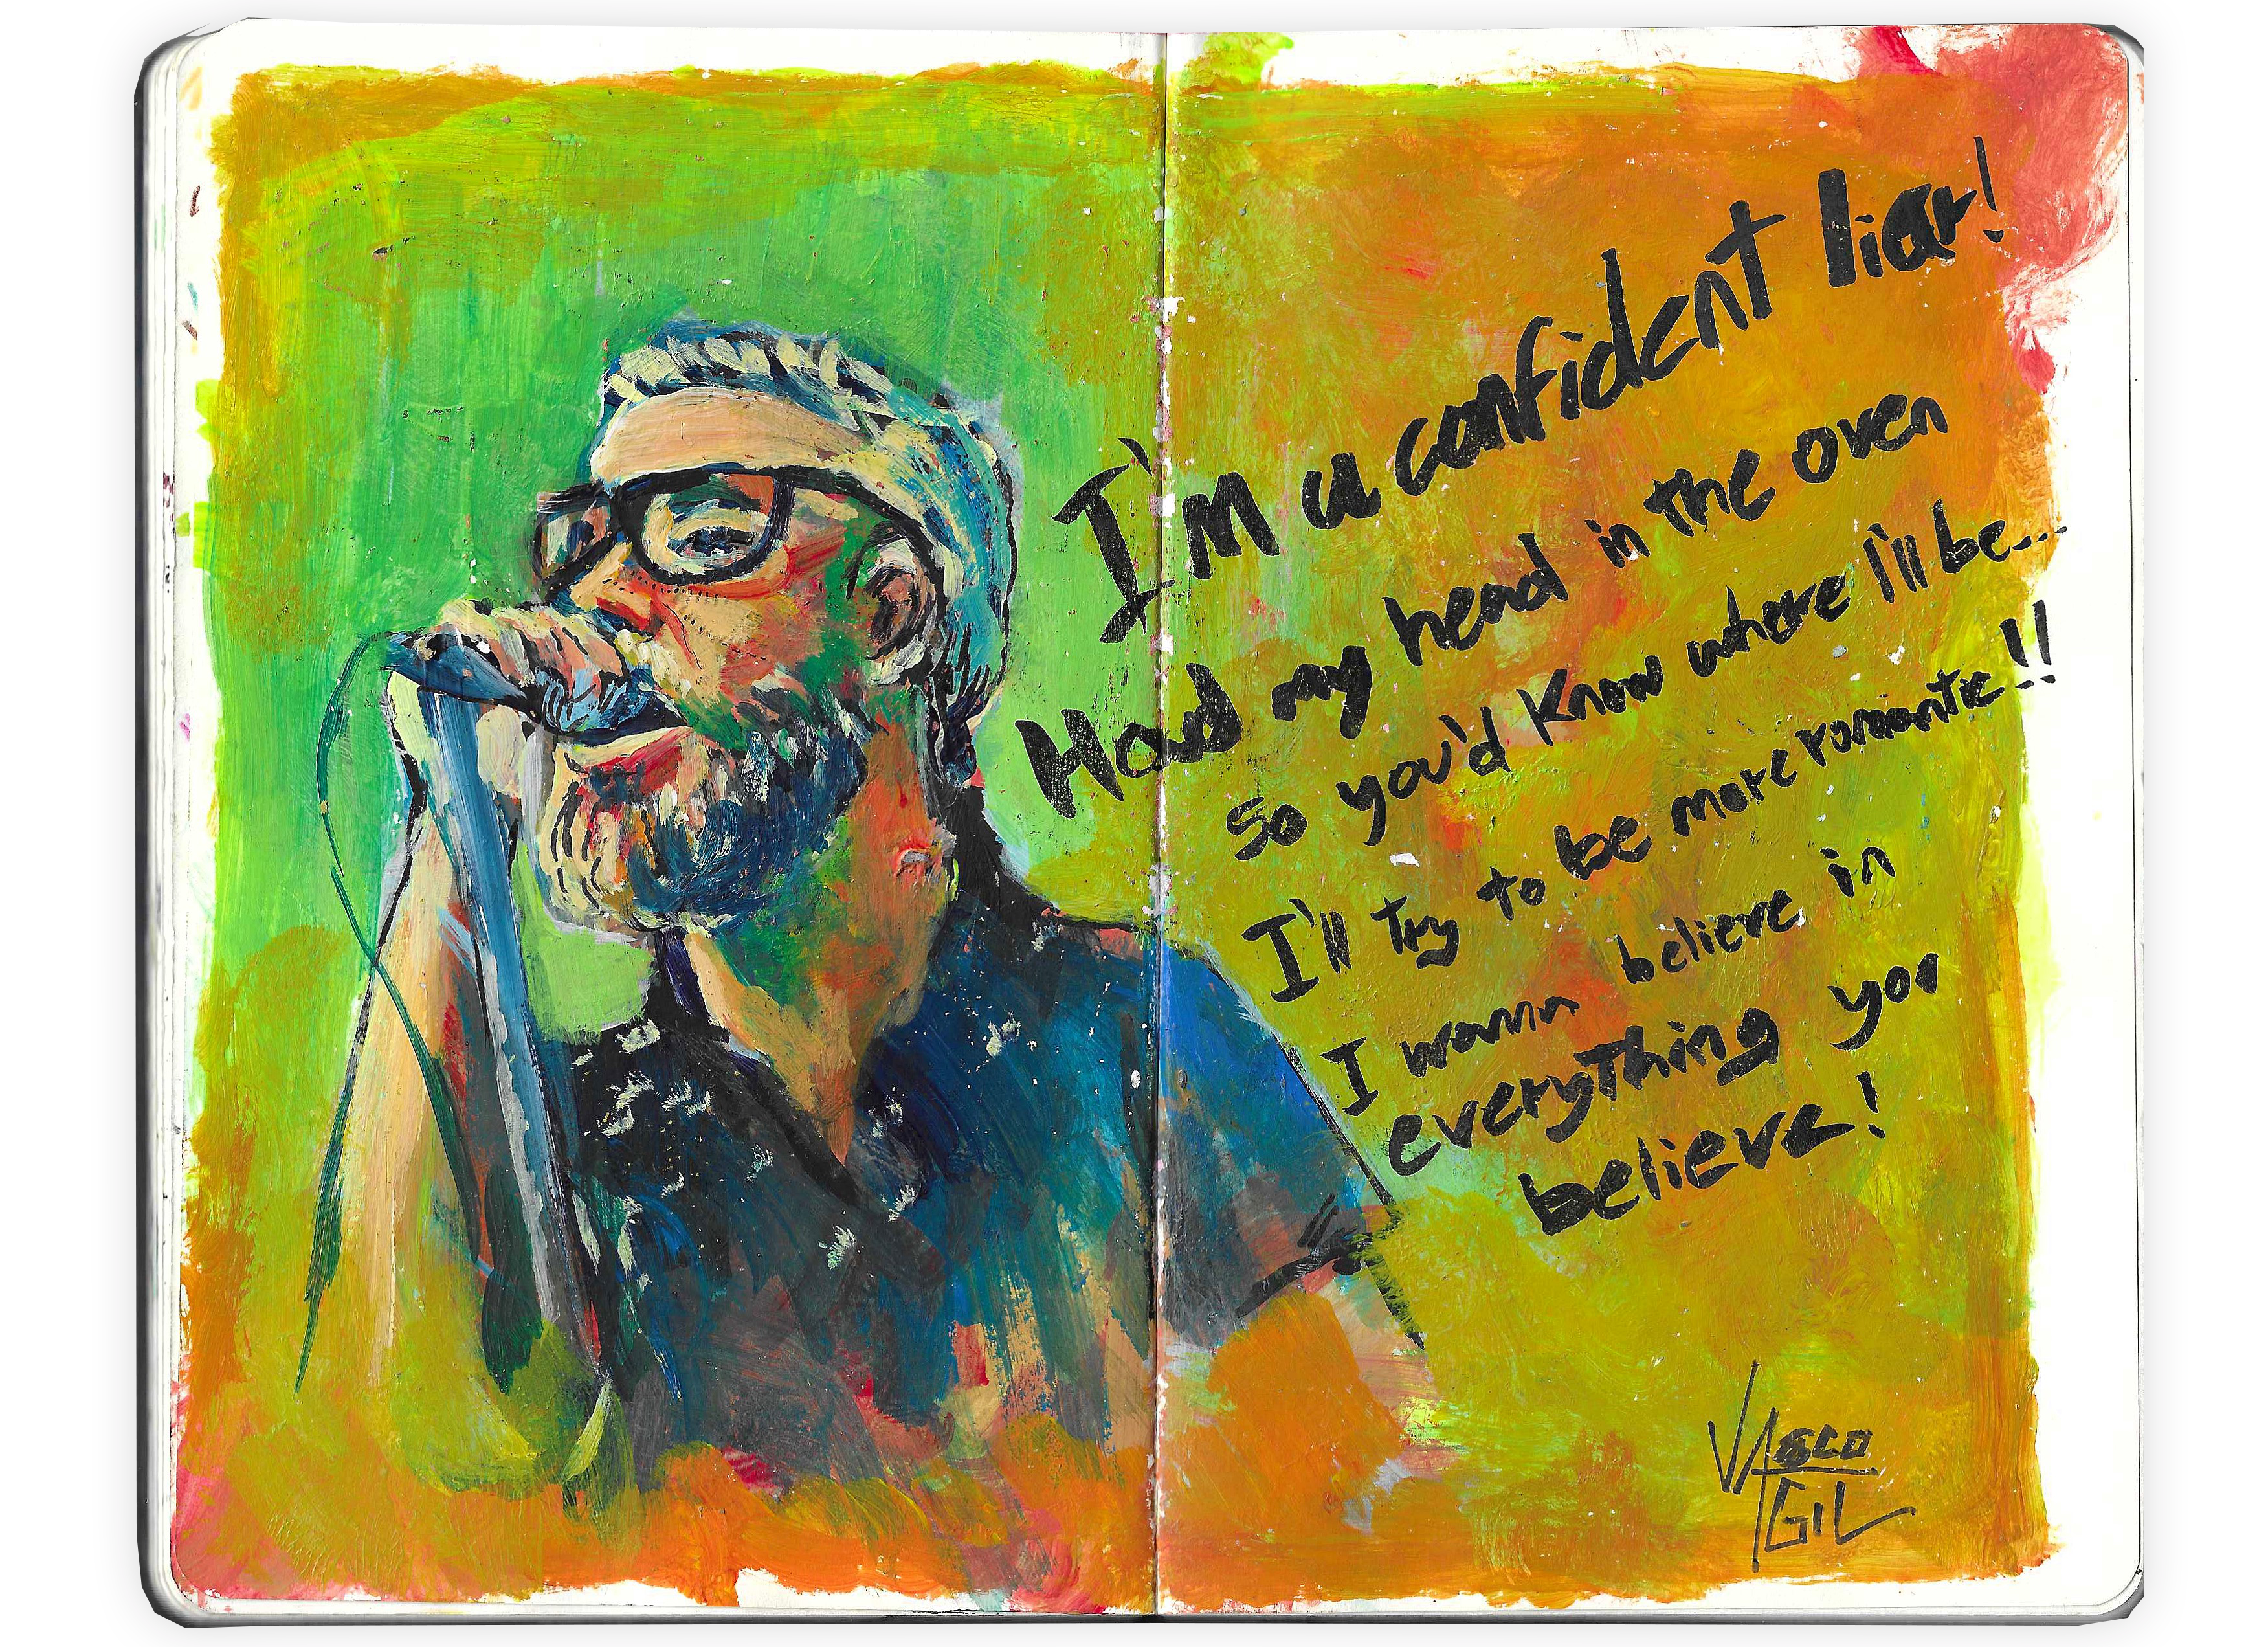 I'm a confident liar!
Had my head in the oven
so you'd know where I'll be...
I'll try to be more romantic!!
I wanna believe in
everything you
believe!
VASCO
GIL